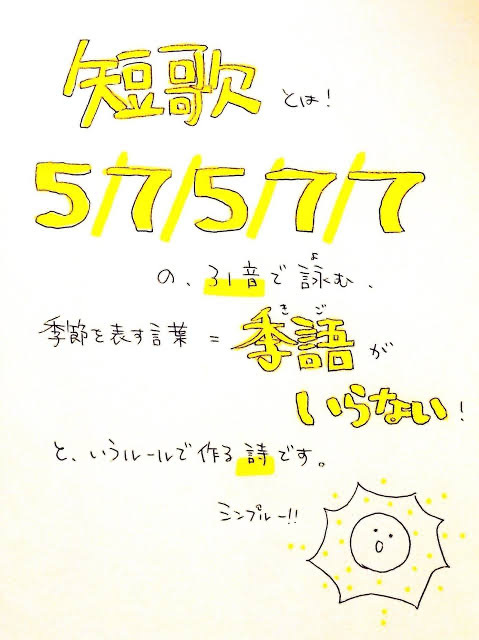 短歌とは!
5/7/5/7/7
の、31音で詠む、
よ
季節を表す言葉=季語が
きご
いらない!
と、いうルールで作る詩です。
シンプルー!!